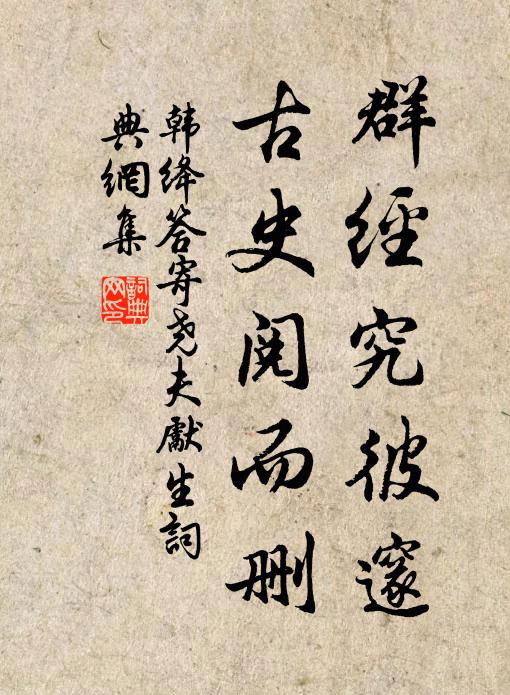 群經究彼邃
古史閱而删
韩绛答寄尧夫獻生詞
典網集
詞典网印